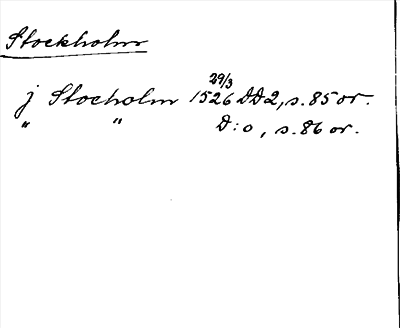 Stockholm
29/3
j Stocholm 1526 DD2, s. 85 or.
" " D:o, s. 86 or.